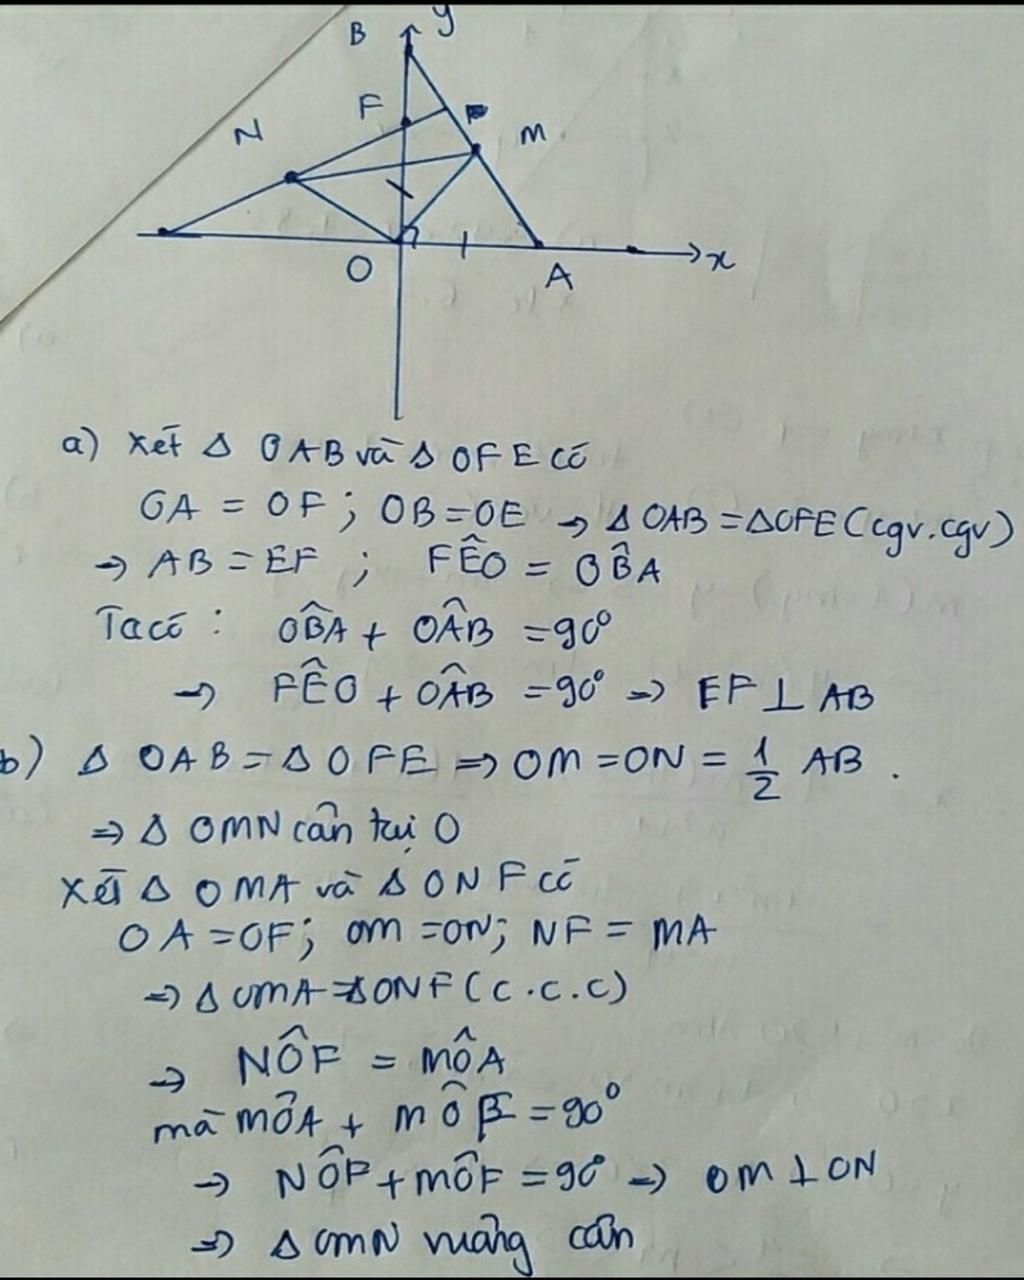 B y
F
N
M
O
A
x
a) Xét Δ OAB và Δ OFE có
OA = OF ; OB = OE → Δ OAB = Δ OFE (cgv.cgv)
→ AB = EF ; FÊO = OB̂A
Ta có : OB̂A + OÂB = 90°
→ FÊO + OÂB = 90° → EF ⊥ AB
b) Δ OAB = Δ OFE => OM = ON = 1/2 AB .
=> Δ OMN cân tại O
Xét Δ OMA và Δ ONF có
OA = OF; OM = ON; NF = MA
=> Δ OMA = Δ ONF (c.c.c)
→ NÔF = MÔA
mà MÔA + MÔF = 90°
→ NÔF + MÔF = 90° → OM ⊥ ON
=> Δ OMN vuông cân